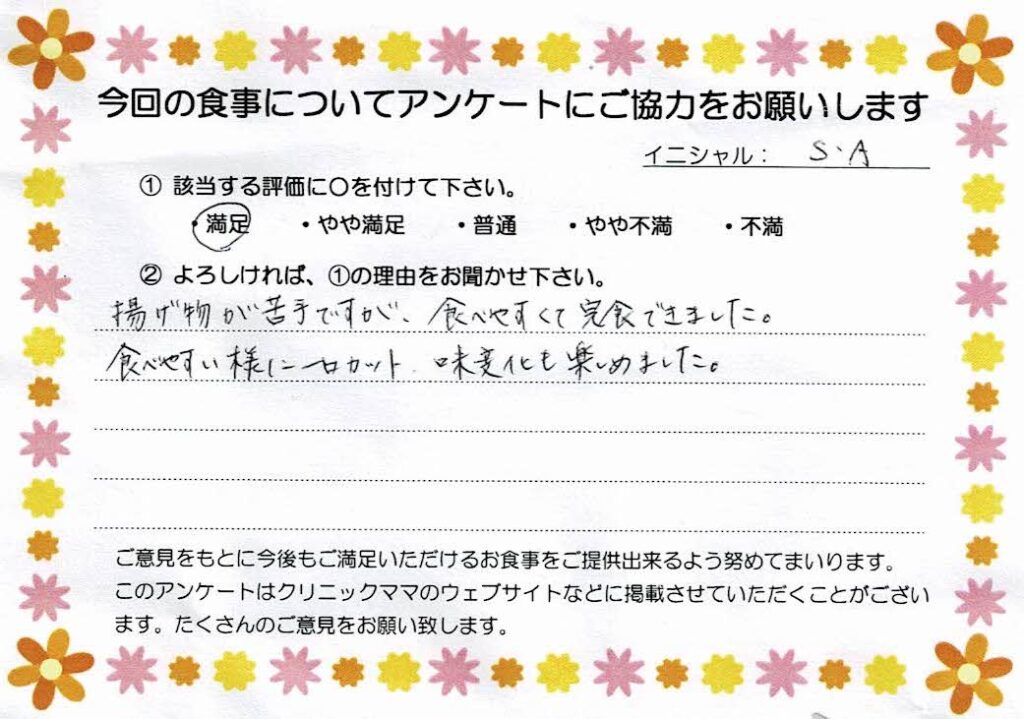 今回の食事についてアンケートにご協力をお願いします
イニシャル： S・A
① 該当する評価に〇を付けて下さい。
・満足 ・やや満足 ・普通 ・やや不満 ・不満
② よろしければ、①の理由をお聞かせ下さい。
揚げ物が苦手ですが、食べやすくて完食できました。
食べやすい様に一口カット、味変化も楽しめました。
ご意見をもとに今後もご満足いただけるお食事をご提供出来るよう努めてまいります。
このアンケートはクリニックママのウェブサイトなどに掲載させていただくことがござい
ます。たくさんのご意見をお願い致します。